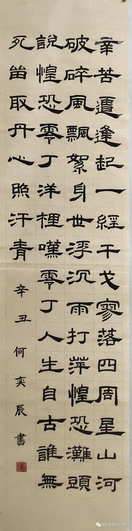 辛苦遭逢起一經干戈寥落四周星山河
破碎風飄絮身世浮沉雨打萍惶恐灘頭
說惶恐零丁洋裡嘆零丁人生自古誰無
死留取丹心照汗青
辛丑何奕辰書